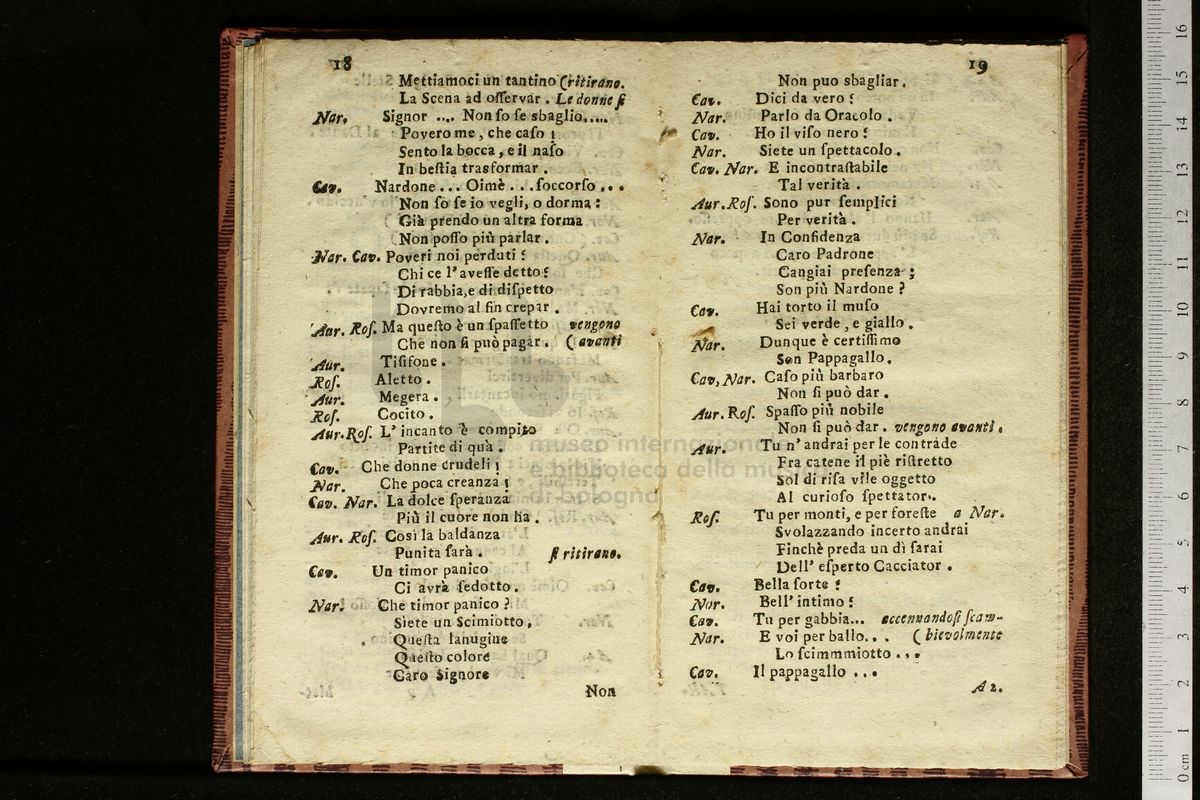 18
Mettiamoci un tantino (ritirano.
La Scena ad oſſervar. Le donne ſi
Nar. Signor .... Non ſo ſe sbaglio.....
Povero me, che caſo !
Sento la bocca, e il naſo
In beſtia trasformar.
Cav. Nardone ... Oimè ... ſoccorſo ...
Non ſo ſe io vegli, o dorma :
Già prendo un altra forma
Non poſſo più parlar.
Nar. Cav. Poveri noi perduti !
Chi ce l'aveſſe detto !
Di rabbia, e di diſpetto
Dovremo al fin crepar.
Aur. Roſ. Ma queſto è un ſpaſſetto vengono
Che non ſi può pagar. (avanti
Aur. Tiſifone.
Roſ. Aletto.
Aur. Megera.
Roſ. Cocito.
Aur. Roſ. L' incanto è compito
Partite di quà.
Cav. Che donne crudeli !
Nar. Che poca creanza !
Cav. Nar. La dolce ſperanza
Più il cuore non ha.
Aur. Roſ. Così la baldanza
Punita ſarà. ſi ritirano.
Cav. Un timor panico
Ci avrà ſedotto.
Nar. Che timor panico ?
Siete un Scimiotto,
Queſta lanugine
Queſto colore
Caro Signore
Non
19
Non puo sbagliar.
Cav. Dici da vero !
Nar. Parlo da Oracolo.
Cav. Ho il viſo nero !
Nar. Siete un ſpettacolo.
Cav. Nar. E incontraſtabile
Tal verità.
Aur. Roſ. Sono pur ſemplici
Per verità.
Nar. In Confidenza
Caro Padrone
Cangiai preſenza ;
Son più Nardone ?
Cav. Hai torto il muſo
Sei verde, e giallo.
Nar. Dunque è certiſſimo
Son Pappagallo.
Cav, Nar. Caſo più barbaro
Non ſi può dar.
Aur. Roſ. Spaſſo più nobile
Non ſi può dar. vengono avanti.
Aur. Tu n' andrai per le contrade
Fra catene il piè riſtretto
Sol di riſa vile oggetto
Al curioſo ſpettator..
Roſ. Tu per monti, e per foreſte a Nar.
Svolazzando incerto andrai
Finchè preda un dì ſarai
Dell' eſperto Cacciator.
Cav. Bella ſorte !
Nar. Bell' intimo !
Cav. Tu per gabbia... accennandoſi ſcam-
Nar. E voi per ballo... (bievolmente
Lo ſcimmmiotto ...
Cav. Il pappagallo ...
A 2.
museo internazionale
e biblioteca della musica
di bologna
0 cm 1 2 3 4 5 6 7 8 9 10 11 12 13 14 15 16